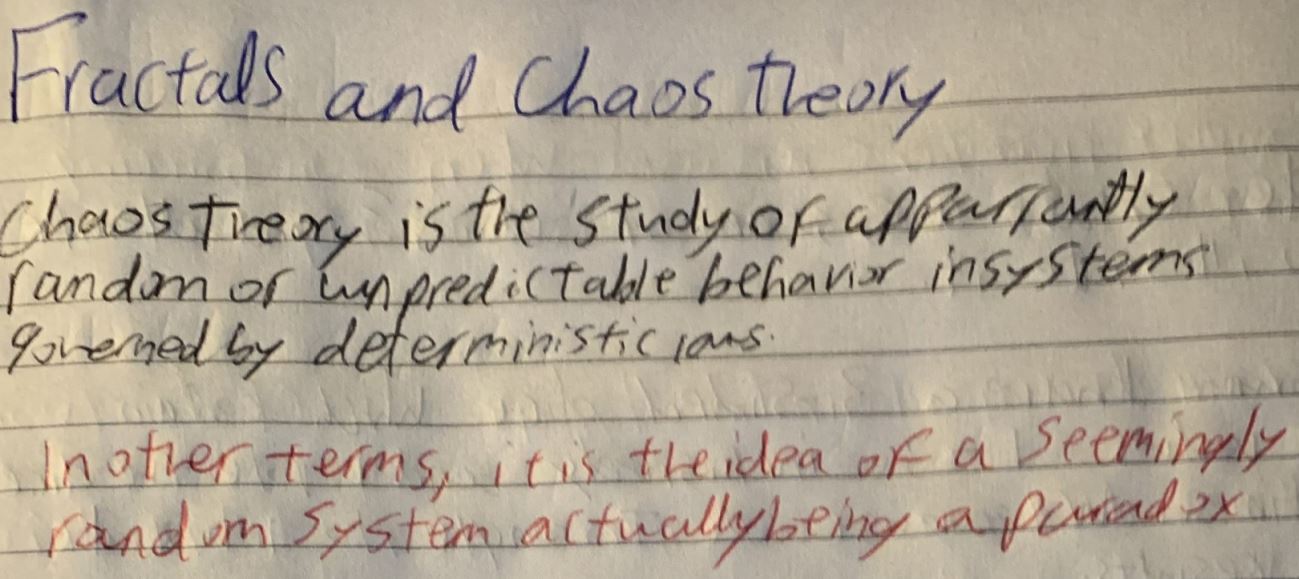 Fractals and Chaos theory
Chaos Theory is the study of apparrantly
random or unpredictable behavior in systems
governed by deterministic laws.
In other terms, it is the idea of a seemingly
random system actually being a paradox